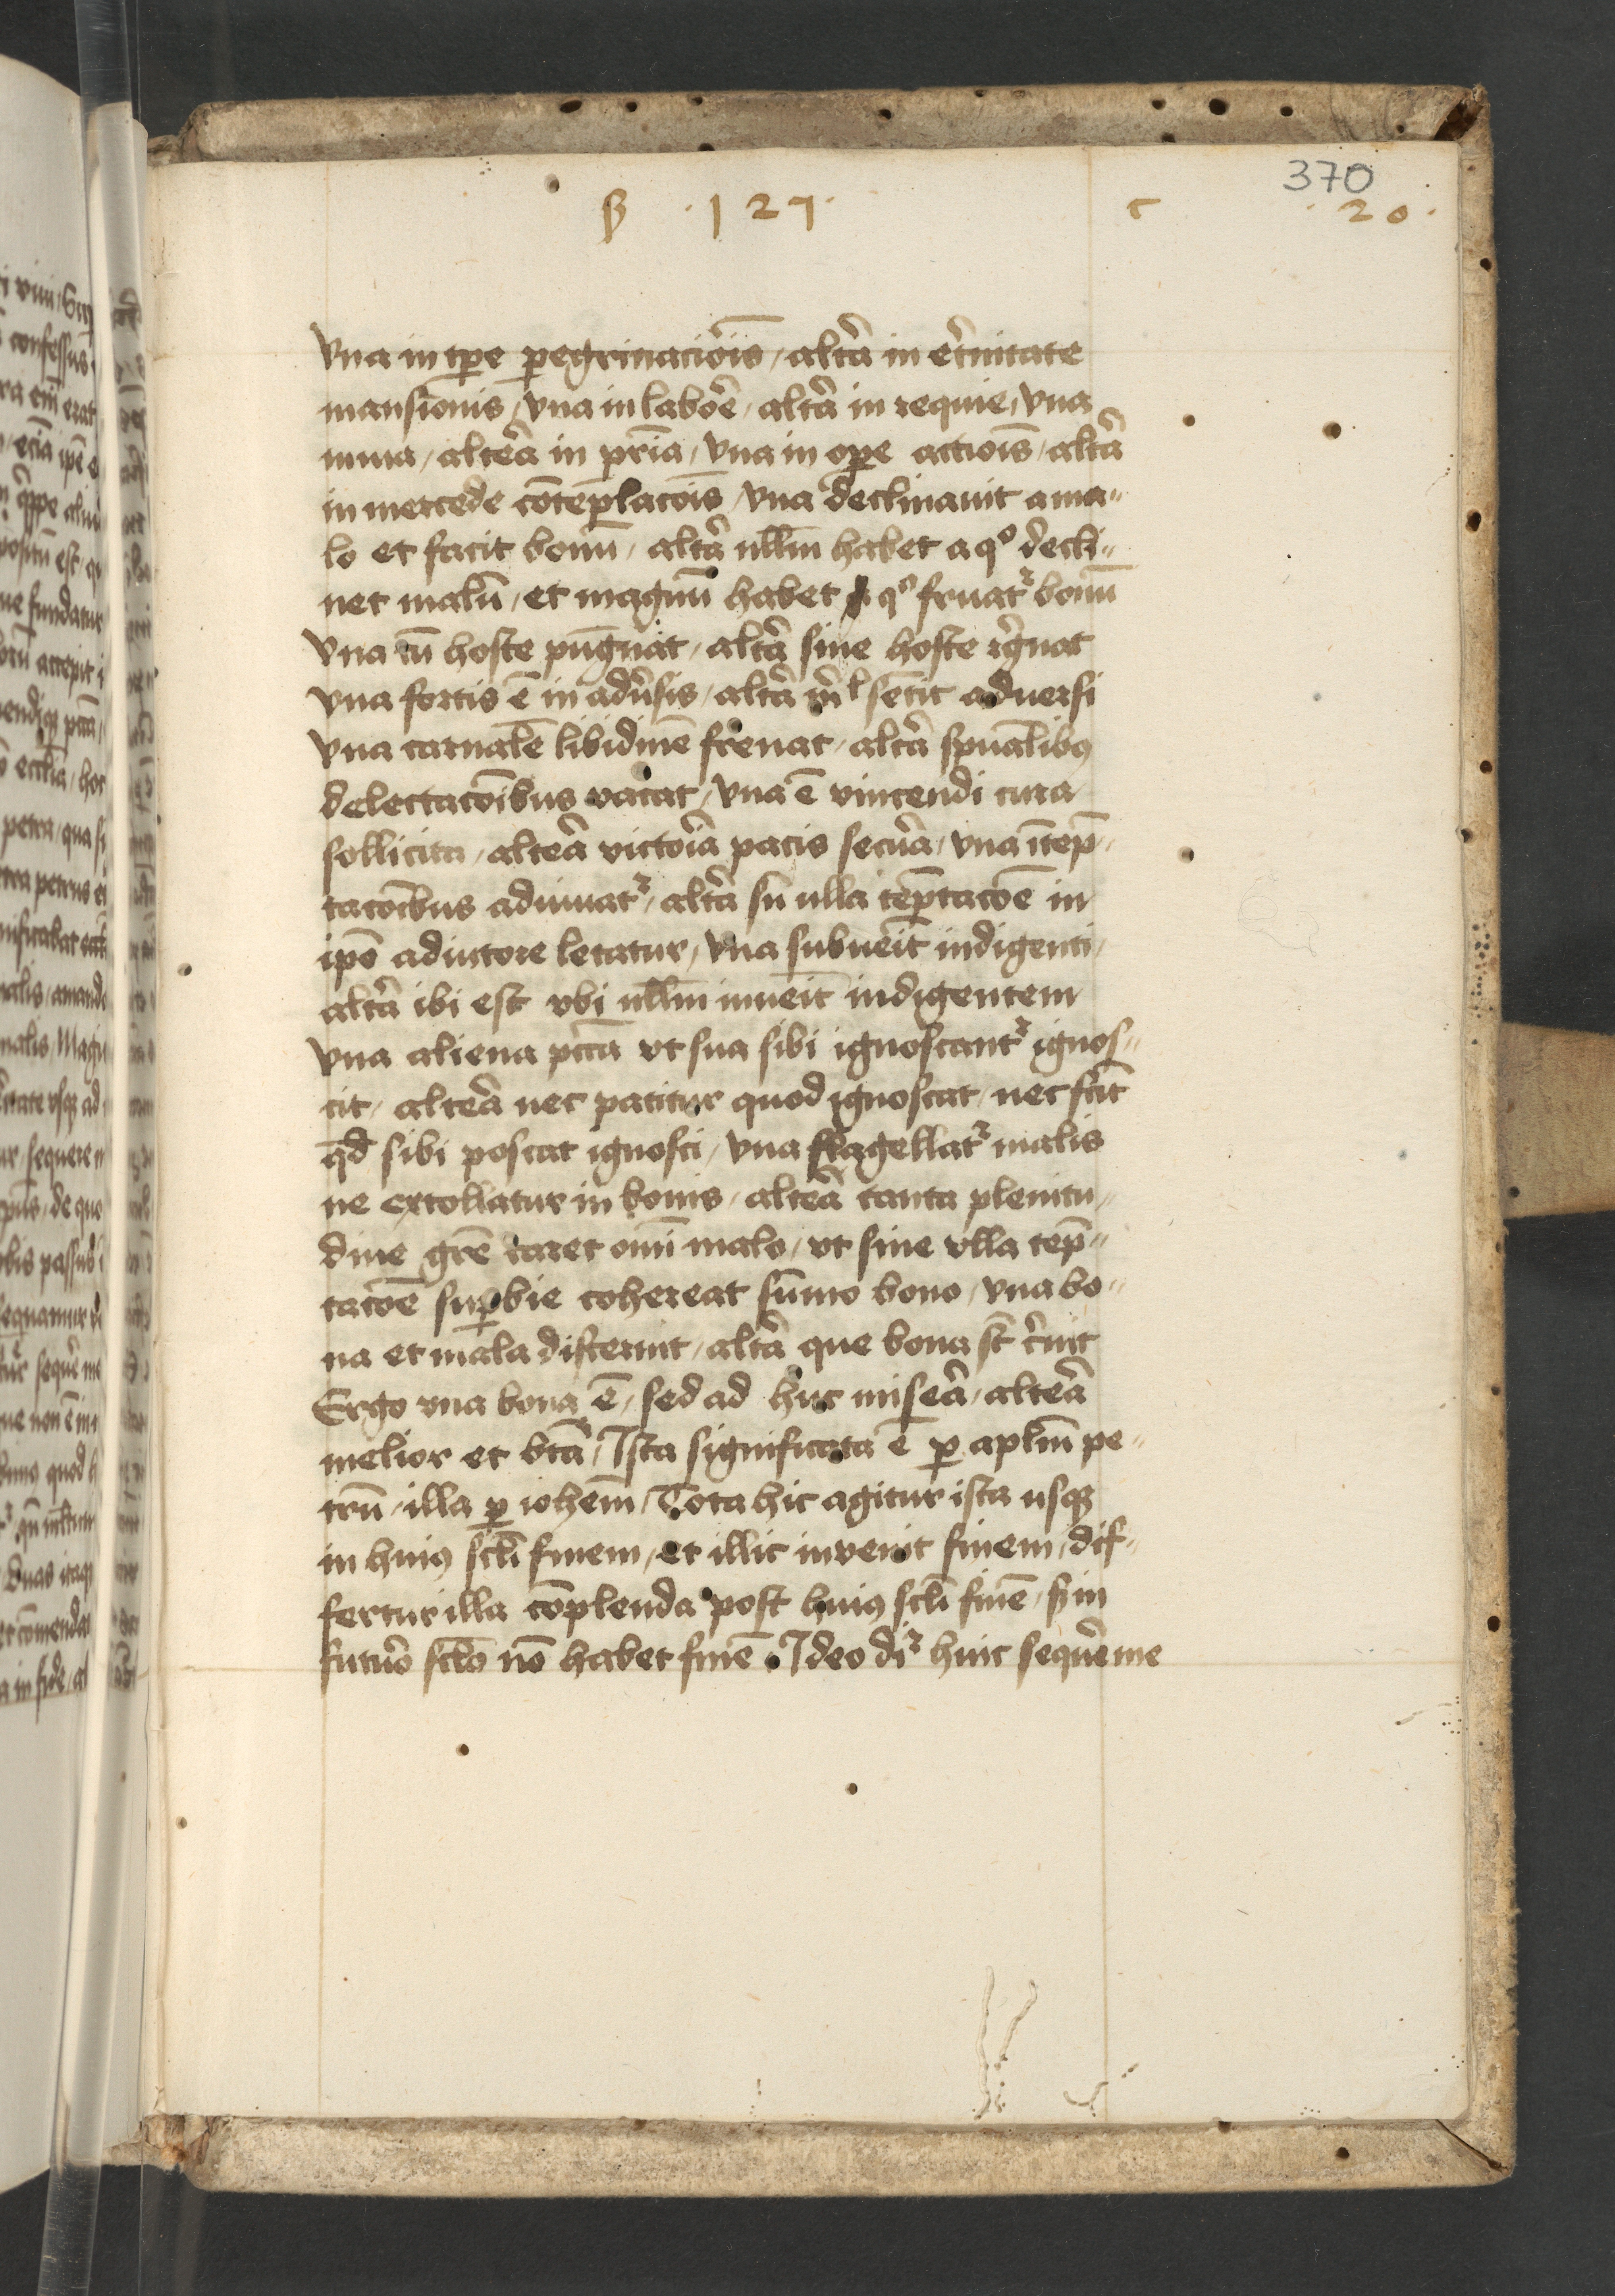 370
β · 1 2 7 · c · 2 0 ·
Vna in tp̱e ꝑegrinac̃ois, altã in et̃nitate
mansionis, vna in labõe, altã in requie, vna
in via, alteã in pr̄ia, vna in oꝑe actiois̄, altã
in mercede cōtemplac̄ois, vna declinauit a ma-
lo et facit bonū, altã ullm̄ habet a qº decli-
net malū, et magnū habet qº fruatr̃ bonū
Vna cū hoste pūgnat, altã sine hoste r̃gnat
vna fortis ē in adũsis, altã nl̃ sētit aduersi
Vna carnalē libidinē frenat, altã spūalibꝫ
delectac̄oibus vacat, vna ē vincendi cura
sollicita, alteã victõia pacis secũa, vna ī tēp-
tac̄oibus adiuuatr̃, altã sñ ulla tēptac̄oe in
ip̄o adiutore letatur, Vna subueīt indigenti,
altã ibi est vbi ullm̄ inueīt indigentem
Vna aliena pc̄ca vt sua sibi ignoscantr̃ ignos-
cit, alteã nec patitur quod ignoscat, nec fc̄it
qd̄ sibi poscat ignosci, vna flagellatr̃ malis
ne extollatur in bonis, alteã tanta plenitu-
dine gr̄e caret om̄i malo, vt sine vlla tēp-
tac̄oe suꝑbie cohereat sūmo bono, vna bo-
na et mala discernit, altã que bona st̄ c̃nit
Ergo vna bona ē, sed ad huc miseã, alteã
melior et bt̄a, Ista significata ē ꝑ apl̄m pe-
trū, illa ꝑ ioh̄em, Tota hic agitur ista usqꝫ
in huiꝰ sc̄li finem, et illic invenit finem, dif-
fertur illa cōplenda post huiꝰ sc̄li finē, sꝫ in
futũo sc̄lo nō habet finē. Ideo dr̃ huic sequẽ me